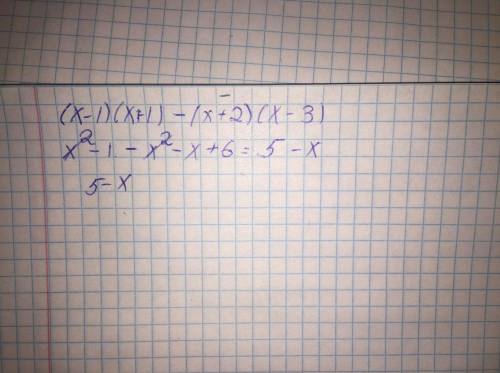 (x-1)(x+1) - (x+2)(x-3)
x² - 1 - x² - x + 6 = 5 - x
5 - x